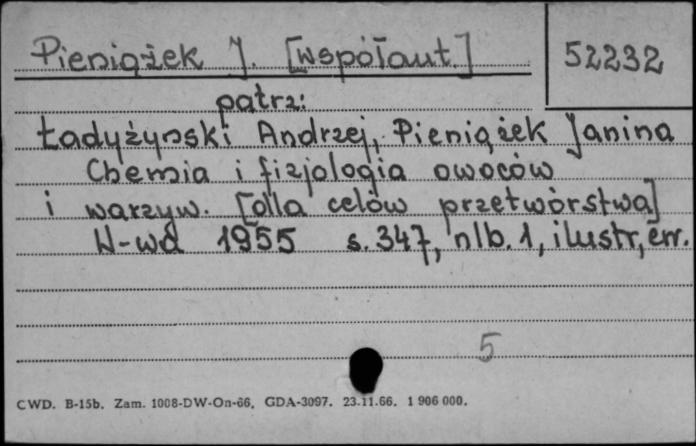 Pieniążek J. [współaut.]
52232
patrz:
Ładyżyński Andrzej, Pieniążek Janina
Chemia i fizjologia owoców
i warzyw. [dla celów przetwórstwa]
W-wa 1955 s. 347, nlb. 1, ilustr, err.
5
CWD. B-15b. Zam. 1008-DW-On-66. GDA-3097. 23.11.66. 1 906 000.